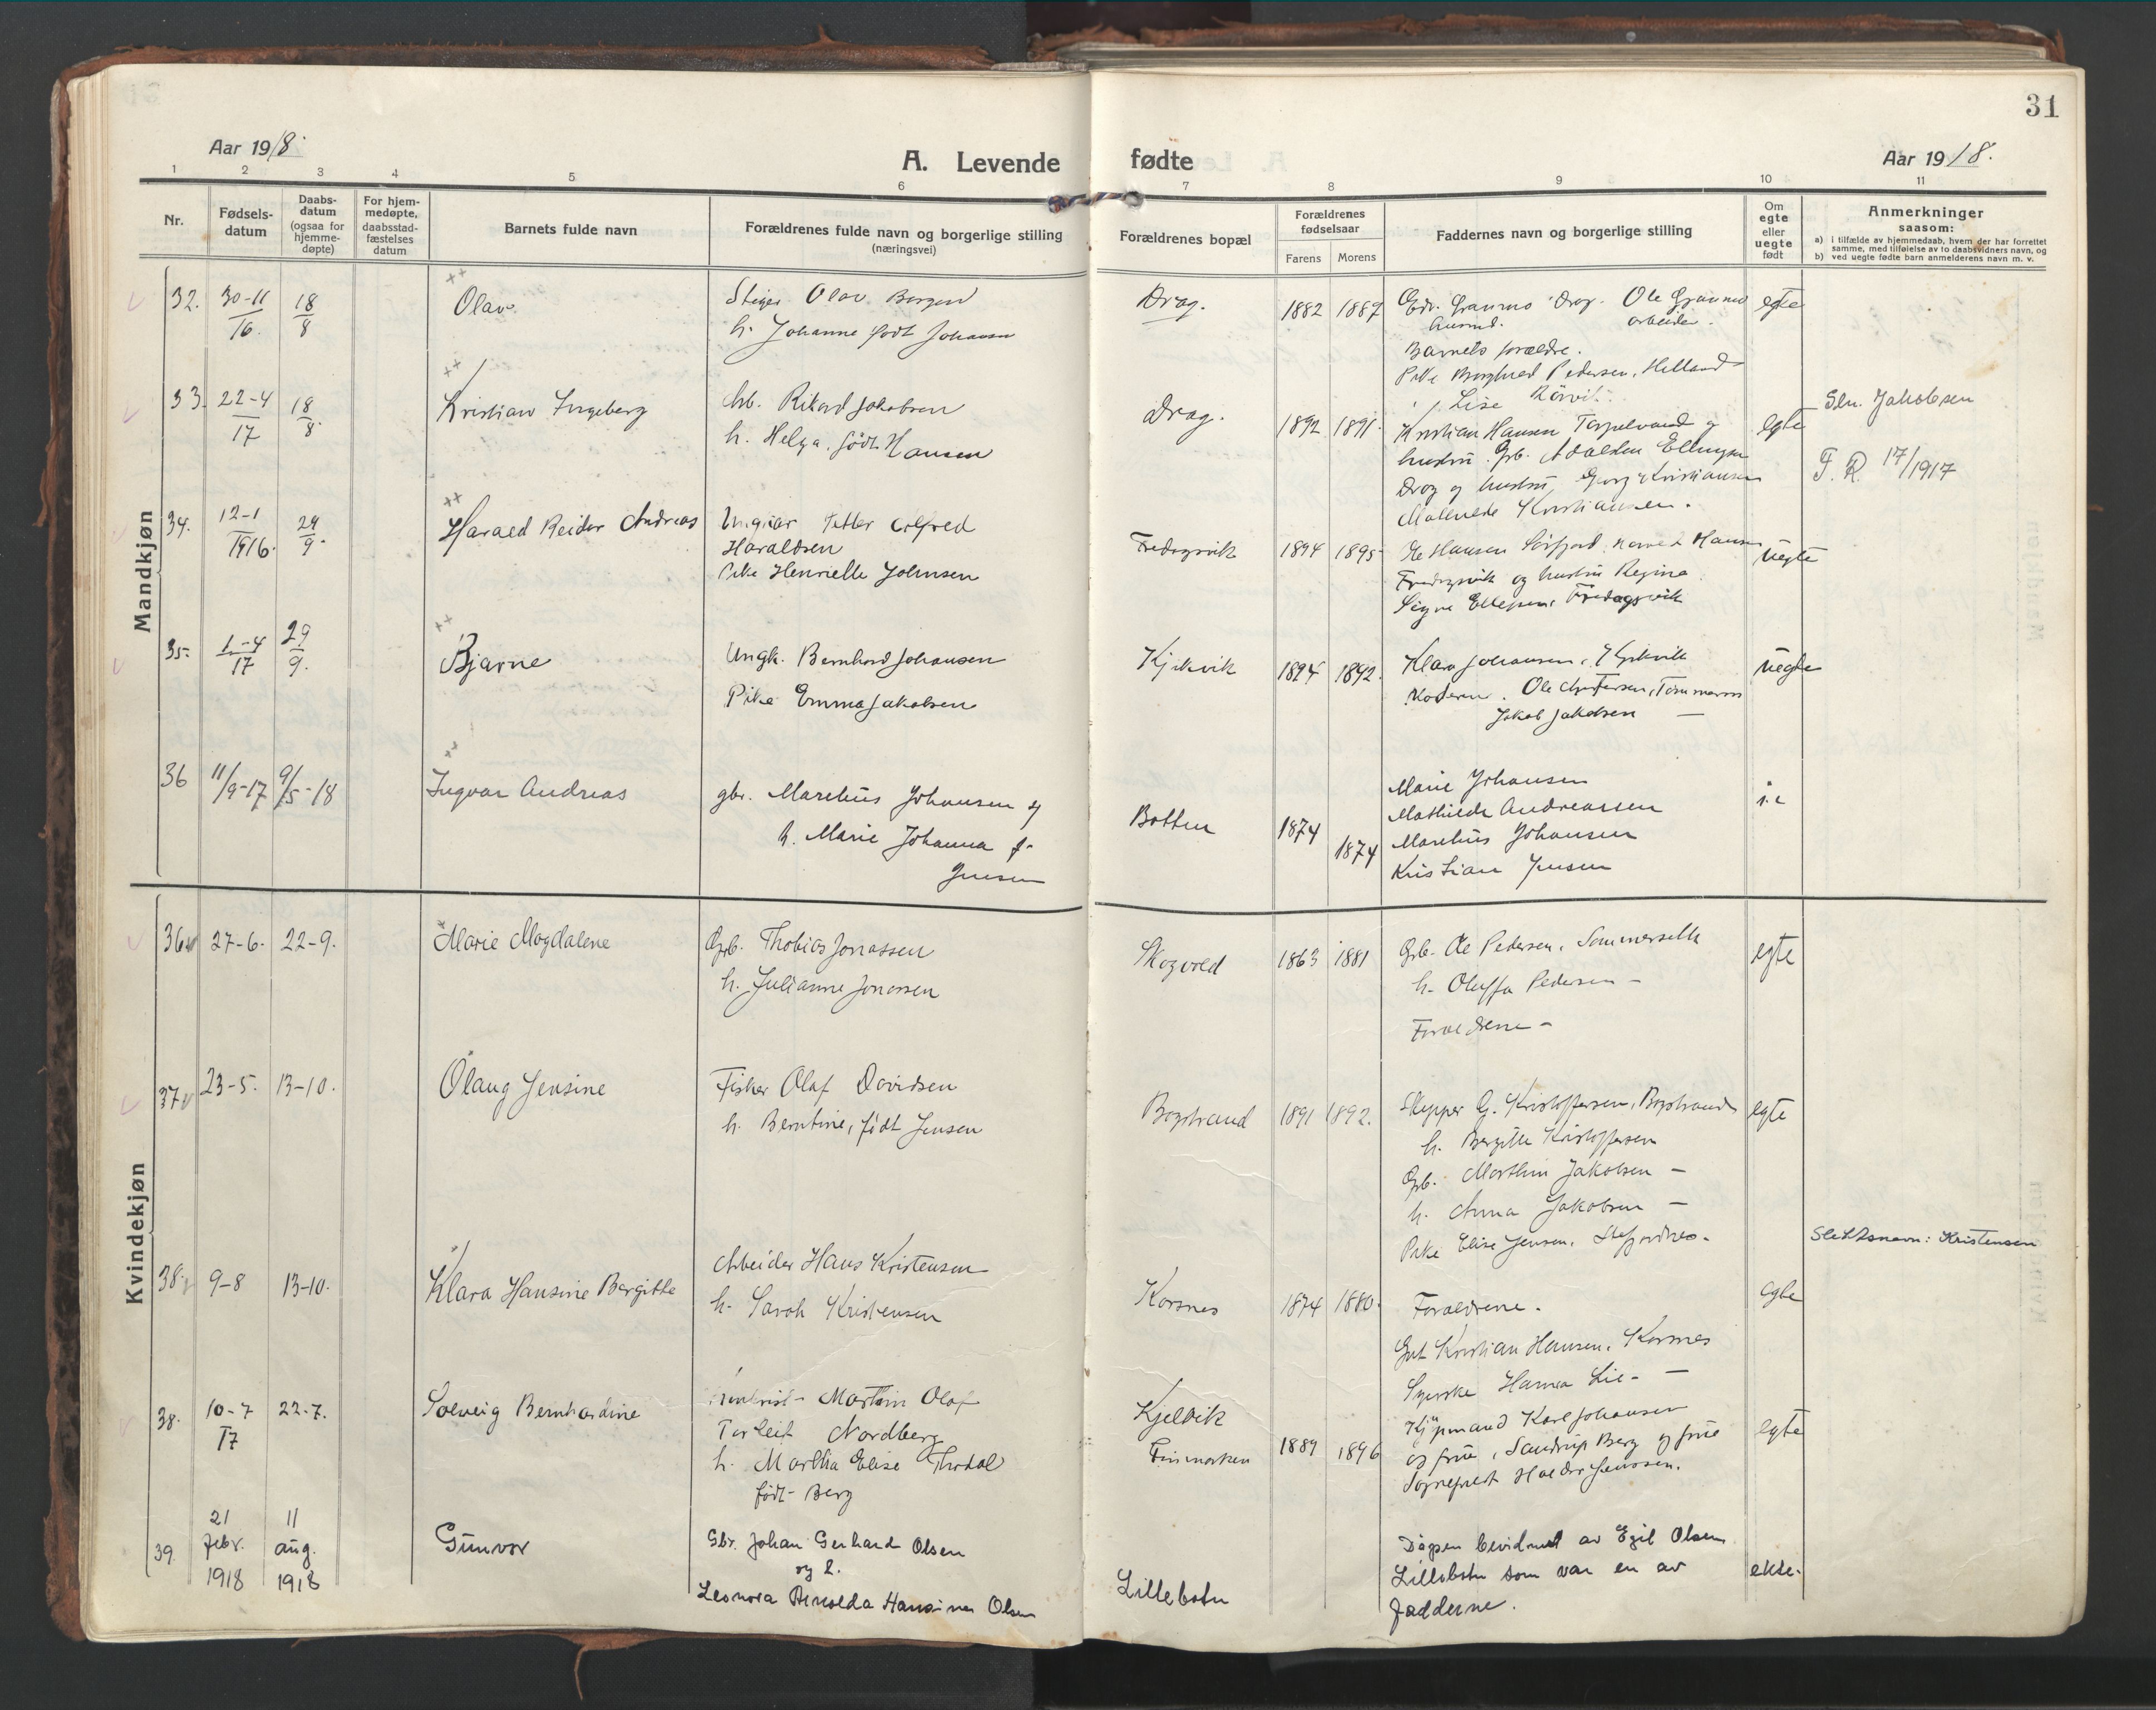 31
Aar 1918.
A. Levende fødte
Aar 1918.
1 2 3 4 5 6 7 8 9 10 11
Nr.
Fødsels-
datum
Daabs-
datum
(ogsaa for
hjemme-
døpte)
For hjem-
medøpte,
daabsstad-
fæstelses
datum
Barnets fulde navn
Forældrenes fulde navn og borgerlige stilling
(næringsvei)
Forældrenes bopæl
Forældrenes
fødselsaar
Farens Morens
Faddernes navn og borgerlige stilling
Om
egte
eller
uegte
født
Anmerkninger
saasom:
a) i tilfælde av hjemmedaab, hvem der har forrettet
samme, med tilføielse av to daabsvidners navn, og
b) ved uegte fødte barn anmelderens navn m. v.
Mandkjøn
32. 30-11/16. 18/8 Olav
Stiger Olav
h. Johanne født Johansen
Drag. 1882 1887
Drag. Ole
arbeider.
Barnets forældre.
Pike Pedersen, Helland
Lise
egte
33. 22-4/17 18/8 Kristian Ingeberg
Rikard Jakobsen
h. Helga, født Hansen
Drag. 1892 1891.
Kristian Hansen og
hustru. Grb.
Drag og hustru, Georg Kristiansen
Kristiansen.
egte
Sln. Jakobsen
F. R. 17/1917
34. 12-1/1916. 29/9. Harald Reidar Andreas
Petter Alfred
Haraldsen
Pike Henrielle Johnsen
1894 1895
Ole Hansen Hansen
og hustru Regine
Signe
uegte
35. 1-4/17 29/9. Bjarne
Ungk. Bernhard Johansen
Pike Emma Jakobsen
Kjikvik 1894 1892.
Klara Johansen, Kjikvik
Moderen. Ole
Jakob Jakobsen —
uegte
36 11/9-17 9/5-18 Ingvar Andreas
gbr. Marelius Johansen og
h. Marie Johanna f.
Jensen
Botten 1874 1874
Marie Johansen
Mathilde Andreassen
Marelius Johansen
Kristian Jensen
Kvindekjøn
36 27-6. 22-9. Marie Magdalene
Grb. Thobias Jonassen
h. Julianne Jonassen
Skogvold 1863 1881
Grb. Ole Pedersen, Sommersette
h. Oluffa Pedersen —
Forældrene —
egte
37 23-5. 13-10. Olaug Jensine
Fisker Olaf Davidsen
h. Berntine, født Jensen
Bogstrand 1891 1892.
Skipper G. Kristoffersen, Bogstrand
h. Bergitte Kristoffersen
Grb. Marthin Jakobsen —
h. Anna Jakobsen —
Pike Elise Jensen,
egte
38. 9-8 13-10. Klara Hansine Bergitte
Arbeider Hans Kristensen
h. Sarah Kristensen
Korsnes 1874 1880.
Forældrene.
Gut Kristian Hansen, Korsnes
Hanna Lie —
egte
Slektsnavn: Kristensen
38. 10-7/17 22-7. Solveig Bernhardine
Martin Olaf
Torleif Nordberg
h. Martha Elise
født Berg
Kjelvik
Finmarken 1889 1896
Kjøpmand Karl Johansen
og frue, Berg og frue
Sogneprest
egte
39. 21 febr. 1918 11 aug. 1918 Gunvor
Gbr. Johan Gerhard Olsen
og h.
Leonora Arnolda Hansine Olsen
Lillebotn
Dåpen bevidnet av Egil Olsen
Lillebotn som var en av
fadderne.
ekte.